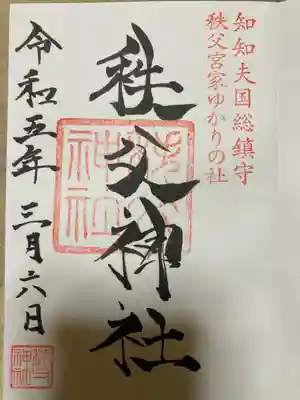 知知夫国総鎮守
秩父宮家ゆかりの社
秩父神社
令和五年 三月六日